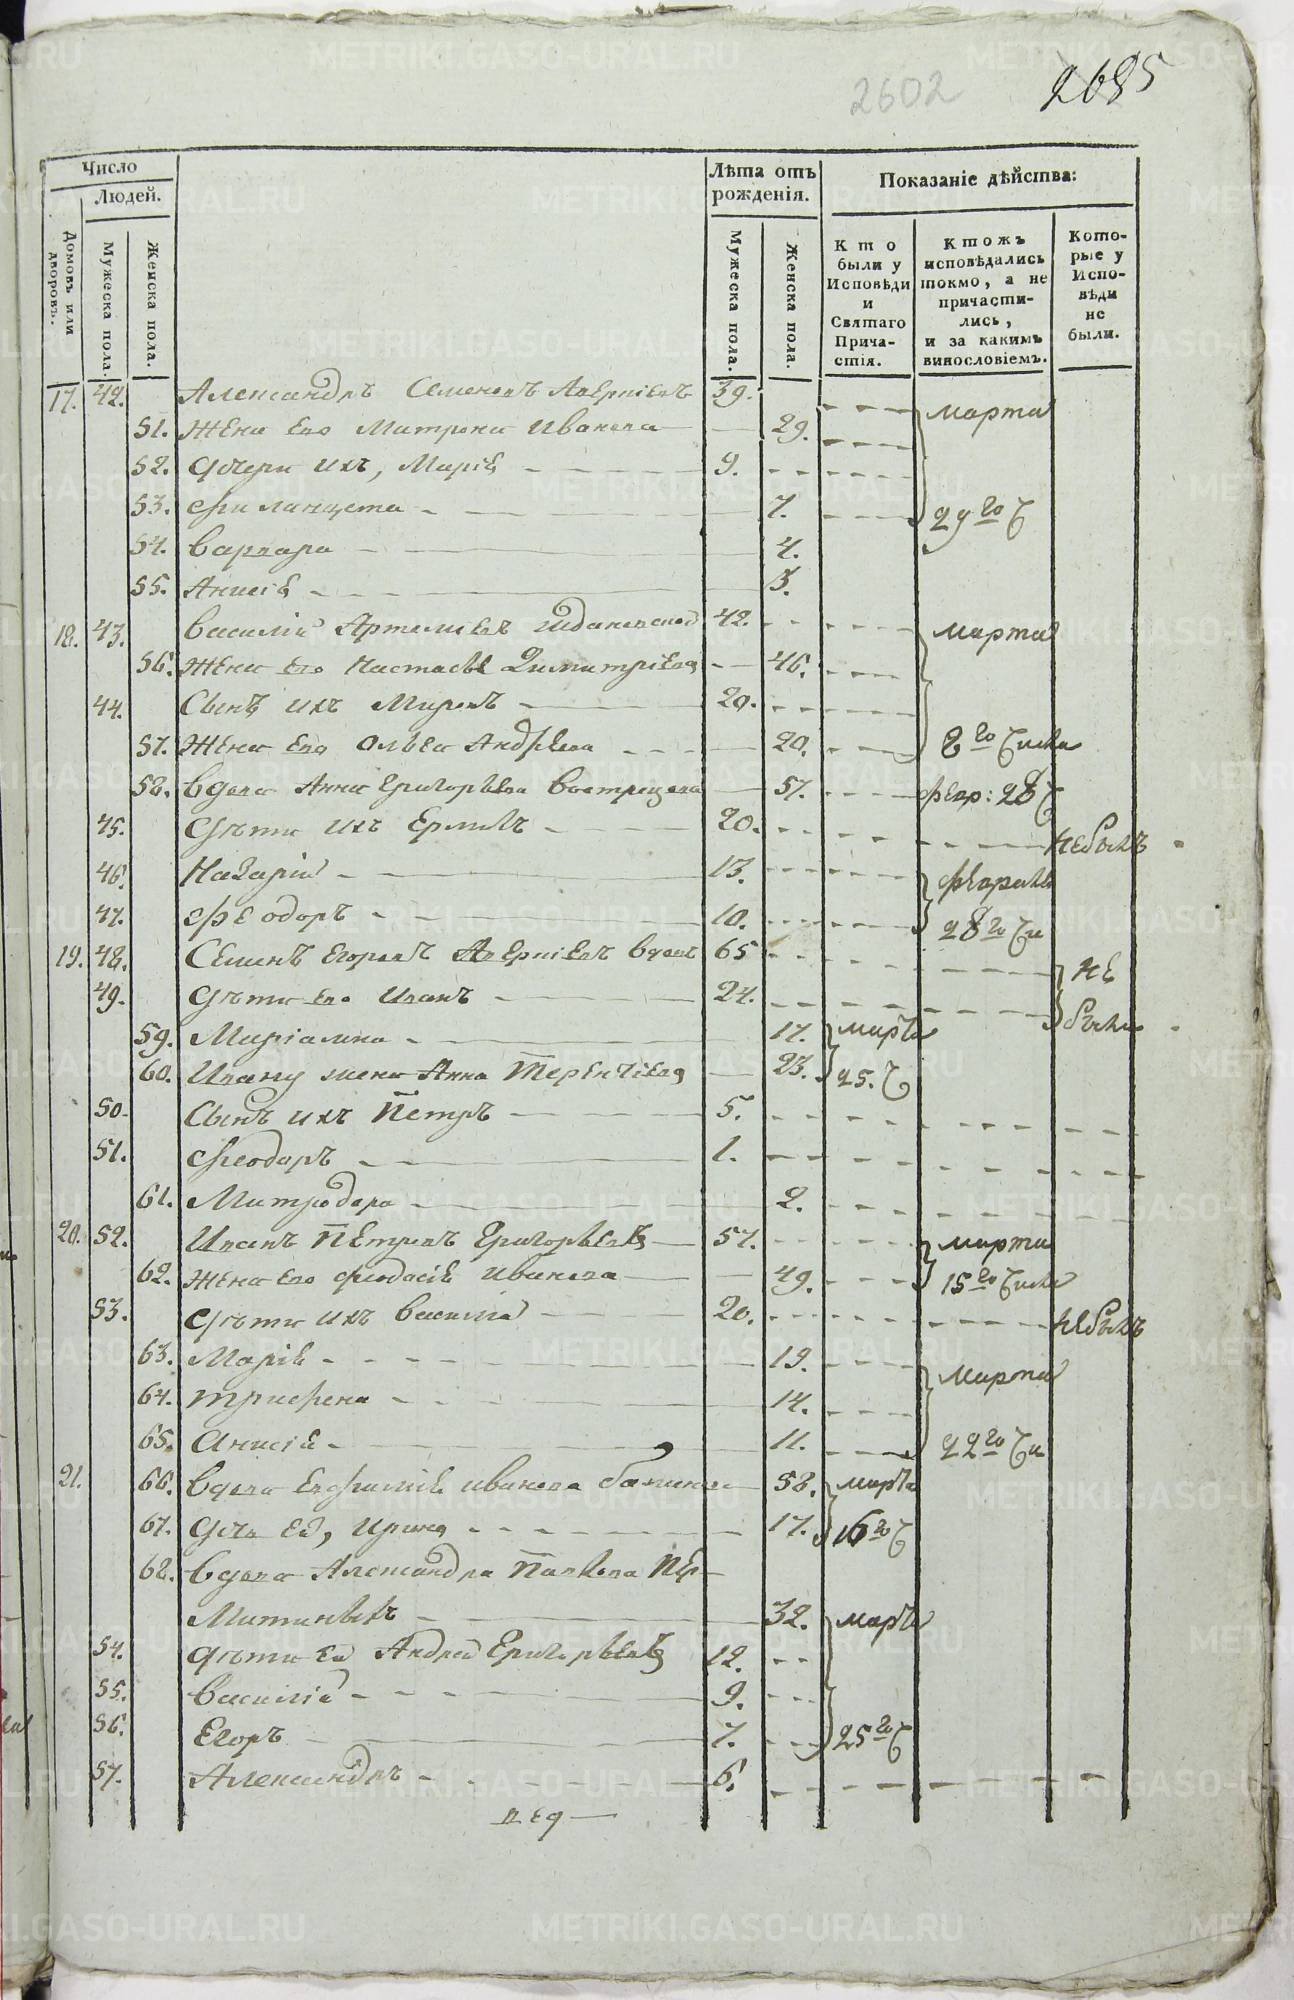 2602
2685
Число
Людей.
Домовъ или дворовъ.
Мужеска пола.
Женска пола.
Лѣта отъ рожденія.
Мужеска пола.
Женска пола.
Показаніе дѣйства:
Кто были у Исповѣди и Святаго Причастія.
Ктожъ исповѣдались токмо, а не причастились, и за какимъ винословіемъ.
Которые у Исповѣди не были.
17. 42. Александръ Семеновъ Аверкіевъ 39. марта
51. Жена его Матрона Иванова 29.
52. Дочери ихъ, Маріѣ 9.
53. 7. 29го Ч
54. Варвара 4.
55. Анисіѣ 3.
18. 43. Василій Артемьевъ 42. марта
56. Жена его Настасья Димитріева 46.
44. Сынъ ихъ Миронъ 20.
57. Жена его Ольга Андрѣева 20. 8го Числа
58. Вдова Анна Григорьева Вострецова 57. Февр: 28 Ч
45. Дѣти ихъ Ермилъ 20. небылъ
46. Назарій 13. февраля
47. Феодоръ 10. 28го Чи
19. 48. Семенъ Егоровъ Аверкіевъ вдовъ 65 не
49. Дѣти его Иванъ 24. были
59. Маріамна 17. марта
60. Ивану жена Анна Терентіева 23. 25. Ч
50. Сынъ ихъ Петръ 5.
51. Феодоръ 1.
61. Митродора 2.
20. 52. Иванъ Петровъ Григорьевъ 57. марта
62. Жена его Феодосіѣ Иванова 49. 15го Числа
53. Дѣти ихъ Василій 20. небылъ
63. Маріѣ 19. марта
64. Трифена 14.
65. Анисіѣ 11. 22го Чи
21. 66. Вдова Евфиміѣ Иванова 58. марта
67. Дочь ея, Ирина 17. 16го Ч
68. Вдова Александра Павлова Пер-
Митиныхъ 32. марта
54. Дѣти ея Андрей Григорьевъ 12.
55. Василій 9.
56. Егоръ 7. 25го Ч
57. Александръ 6.
METRIKI.GASO-URAL.RU